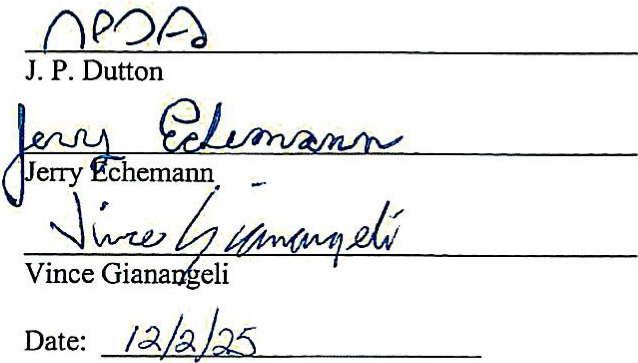 J. P. Dutton
Jerry Echemann
Jerry Echemann
Vince Gianangeli
Vince Gianangeli
Date: 12/2/25